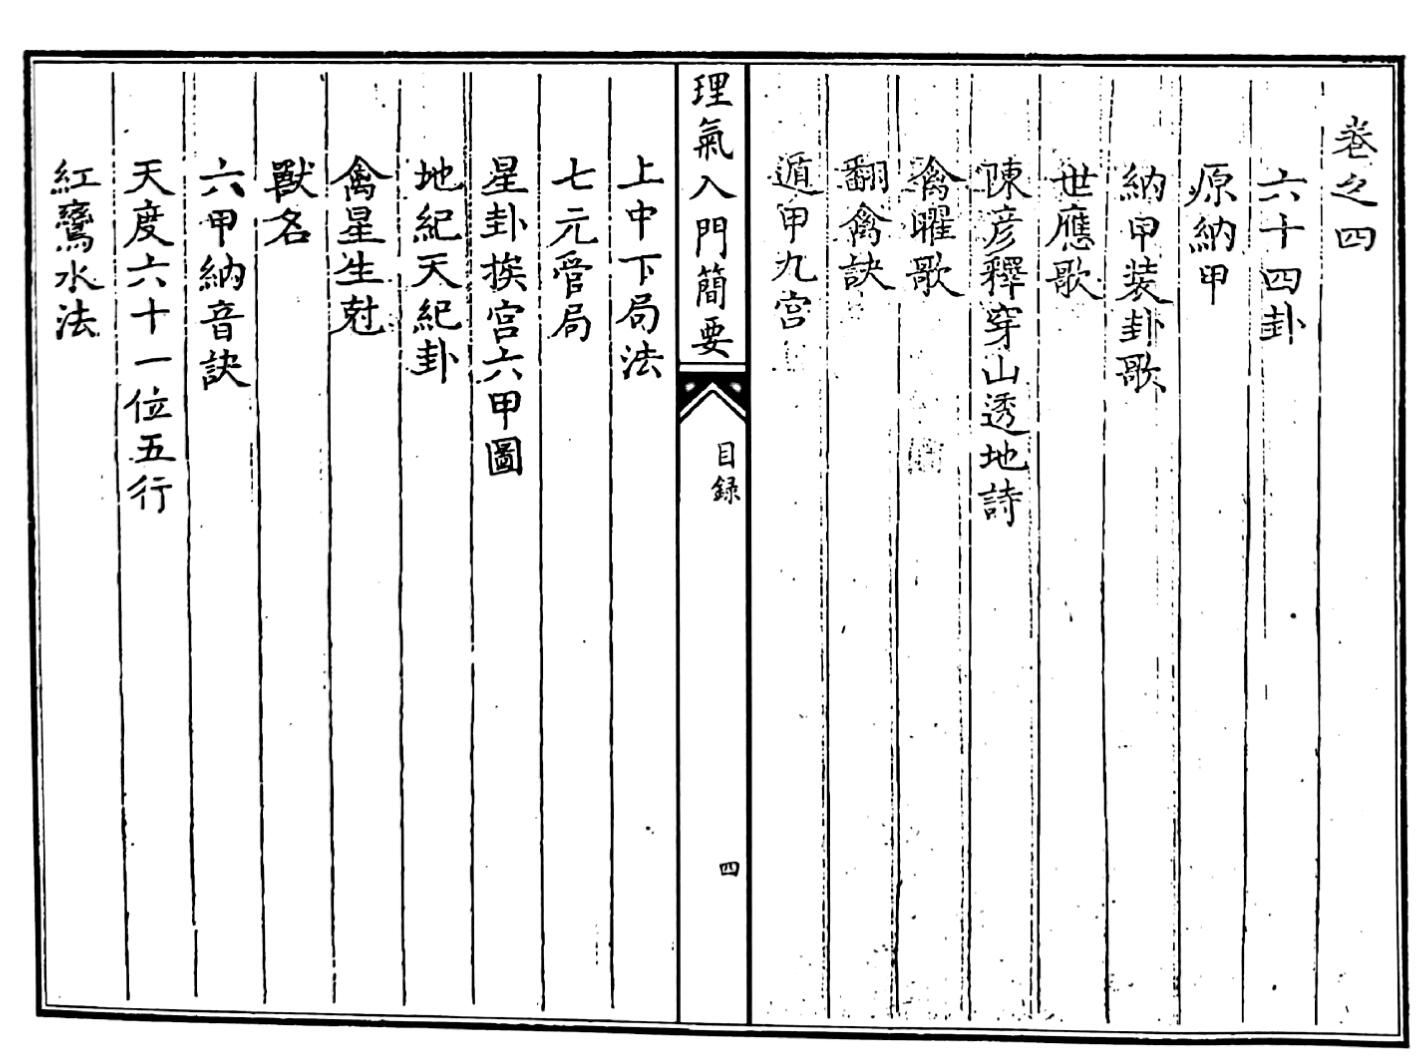 卷之四
六十四卦
原納甲
納甲裝卦歌
世應歌
陳彦釋穿山透地詩
禽曜歌
翻禽訣
遁甲九宫
理氣入門簡要
目録
四
上中下局法
七元管局
星卦挨宫六甲圖
地紀天紀卦
禽星生尅
獸名
六甲納音訣
天度六十一位五行
紅鸞水法